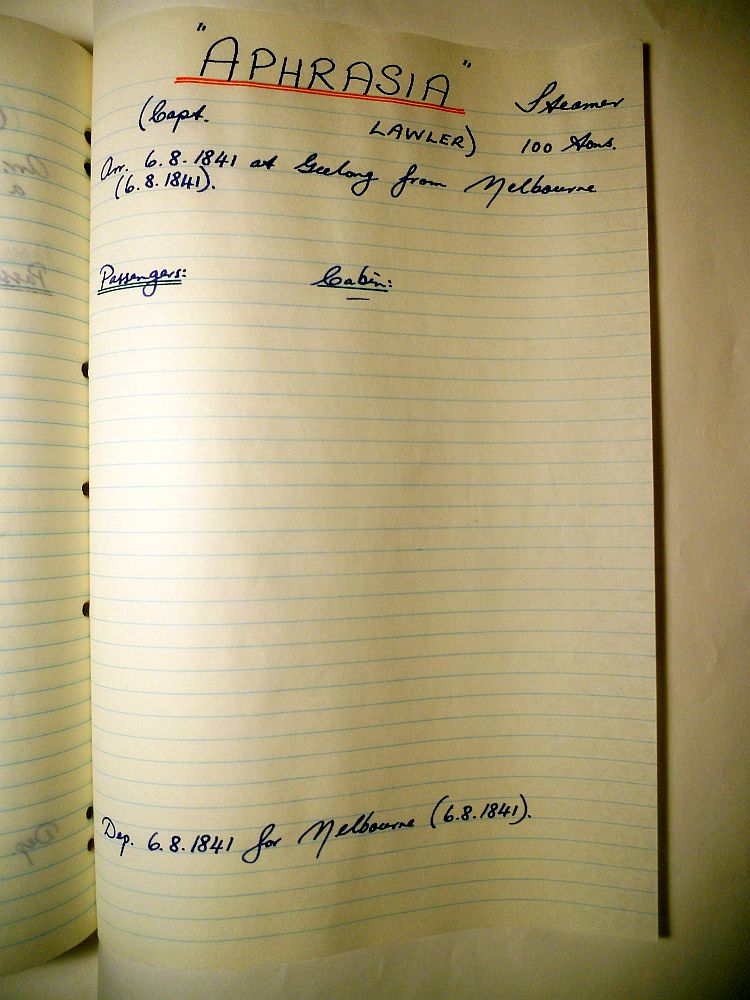 "APHRASIA" Steamer
(Capt. LAWLER) 100 tons.
Arr. 6.8.1841 at Geelong from Melbourne
(6.8.1841).
Passengers: Cabin:
Dep. 6.8.1841 for Melbourne (6.8.1841).